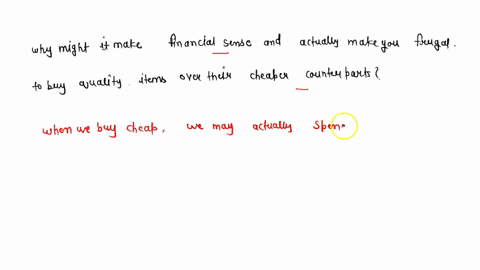 why might it make financial sense and actually make you frugal.
to buy quality items over their cheaper counterparts?
when we buy cheap, we may actually spen